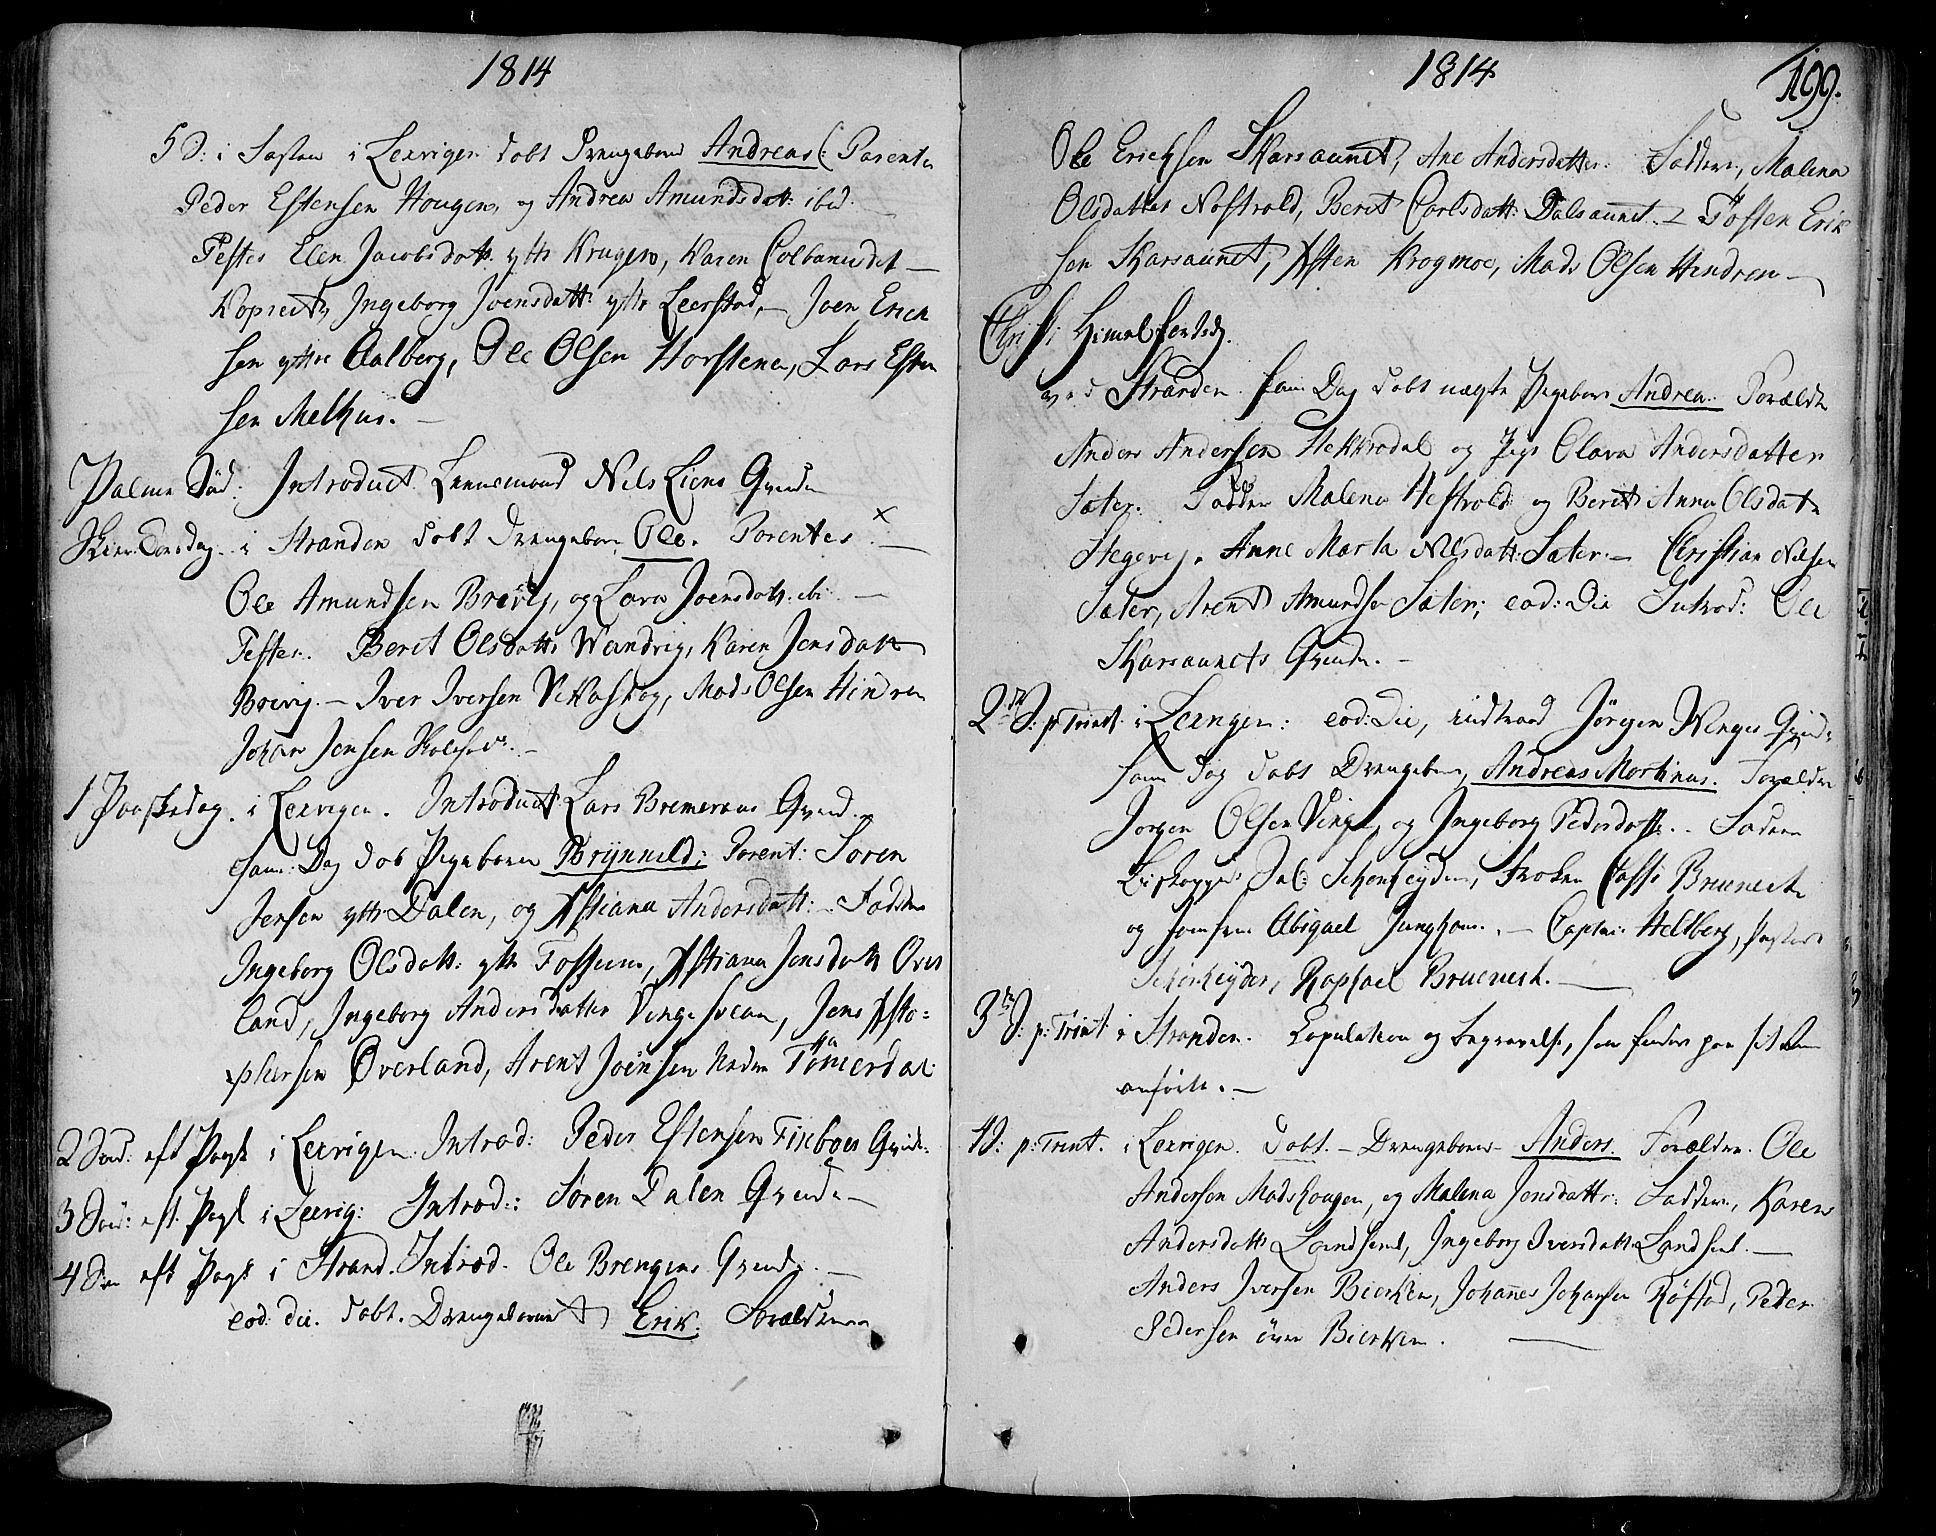 1814
5 S: i Fasten i Lexvigen Døbt Drengebarn Andreas (: Parente
Peder Estensen Hougen, og Andrea Amundsdatt: ibid.
Testes Elen Jacobsdatt yttr Krugsv, Karen Colbanusdt —
Kopreit, Ingeborg Joensdatt: yttr Leerstad, — Joen Erick
sen yttre Aalberg, Ole Olsen Horstene, Lars Esten
sen Melhus. —
Palme Sød: Introduct Leensmand Nils Liens Qvinde
Skier Torsdag i Stranden Døbt Drengebarn Ole. Parentes × —
Ole Amundsen Brevig, og Lava Joensdatt: ibi —
Testes. Beret Olsdatt: Wandvig, Karen Jensdatt
Brevig. — Iver Iversen Vekaskog, Mads Olsen Hindren
Johan Jensen —
1 Paaskedag i Lexvigen. Introduct Lars Bremeraas Qvind.
sam: Dag døb Pigebarn Brÿnnild: Parent: Søren
Jensen yttr Dalen, og Xstiana Andersdatt: — Faddere
Ingeborg Olsdatt: yttr Fossum, Xstiana Jensdatt Over
land, Ingeborg Andersdatter Vinge svean, Jens Xsto=
phersen Overland, Arent Joensen Nedre Tömerdal
2 Sønd: eft Paask i Lexvigen Introd: Peder Estensen Qvinde:
3 Søn: eft Paask i Lexvig: Introd:: Søren Dalen Qvinde —
4 Søn eft Paask i Strand. Introd. Ole Brengens Qvinde. —
eod: die. døbt. Drengebarnet Erik. Forældrene
1814
199.
Ole Ericksen Skarsaunet, Ane Andersdatter. Faddere, Malena
Olsdatter Nostvold, Beret Carlsdatt: Dalsaunet. — Tosten Erik
sen Skarsaunet, Xsten Krogmoe, Mads Olsen Hindren —
Christi Himmelfartsdg.
ved Stranden sam: Dag døbt uægte Pigebarn Andrea. Forældre
Anders Andersen Hekkrodal og Pige Olava Andersdatter
Sæter. Faddere Malena Hestvold og Berit Anna Olsdat
Stegevig. Anne Marta Nilsdatt: Sæter. — Christian Nilsen
Sæter, Arent Amundsen Sæter; eod: Die Introd: Ole
Skarsaunets Qvinde. —
2den S: p: Trint: i Lexvigen: eod: Die, indtraad Jörgen Winges Qvinde
sam dag døbt Drengebarn, Andreas Martinus. Forældre
Jorgen Olsen Vinge, og Ingeborg Pedersdatt.. Faddere
Schonheyder, Frøken Bruunech
og Jomfrue Abigael Junghans. — Captain Heltberg, Pastor
Schonheyder, Raphael Bruenech. —
3die S: p: Trint i Stranden. Copulation og Begravelse, som findes paa sit
anførte. —
4 S: p: Trint. i Lexvigen. Døbt. — Drengebarn — Anders. Forældre. Ole
Andersen Madshougen, og Malena Jensdatter: Faddere, Karen
Andersdatt: Landsend, Ingeborg Iversdatt: Landsend. —
Anders Iversen Bierken, Johannes Johansen Røstad, Peder
Pedersen övre Bierken. —